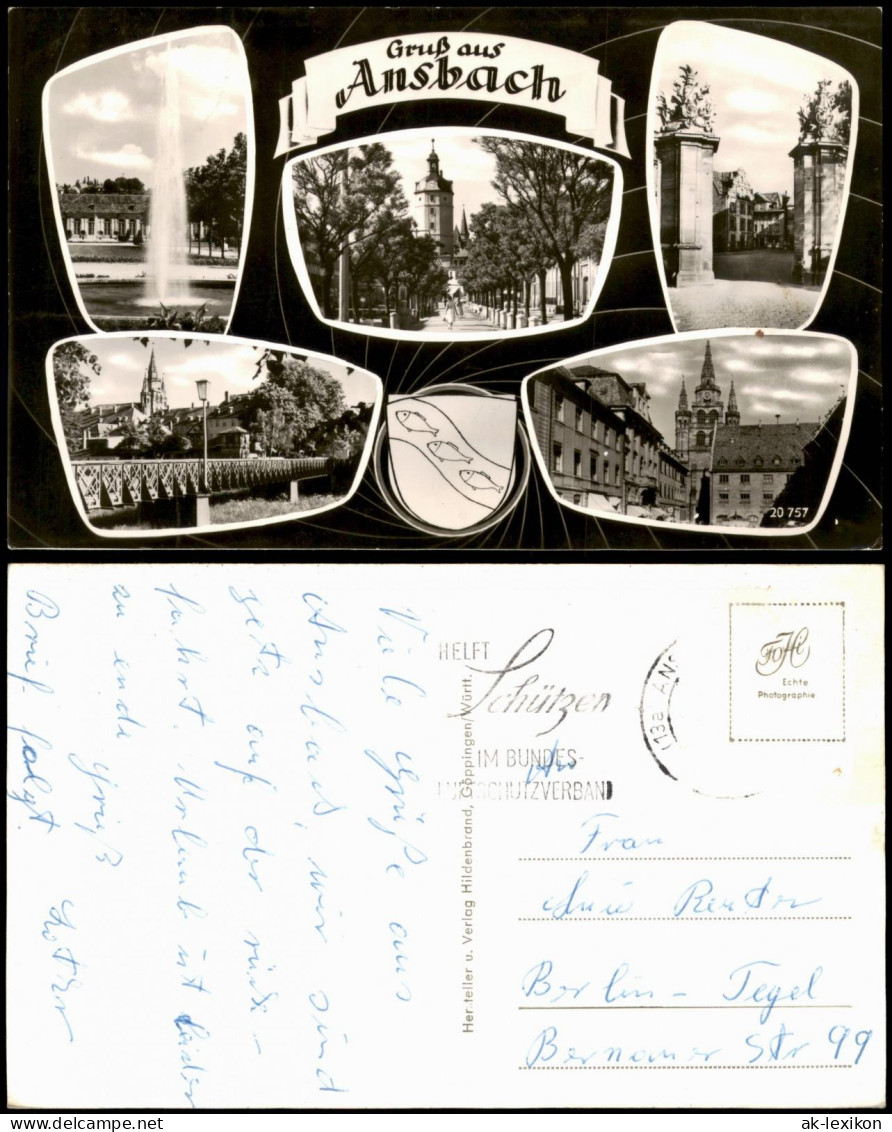 Gruß aus
Ansbach
20 757
Viele Grüße aus
Ansbach, wir sind
jetz auf der rück-
fahrt. Urlaub ist leider
zu ende Gruß
Brief folgt.
HELFT
Schützen
IM BUNDES-
LUFTSCHUTZVERBAND
(13a) ANS
FOHi
Echte
Photographie
Hersteller u. Verlag Hildenbrand, Göppingen/Württ.
An
Frau
Reuter
Berlin - Tegel
Bernauer Str 99
ak-lexikon